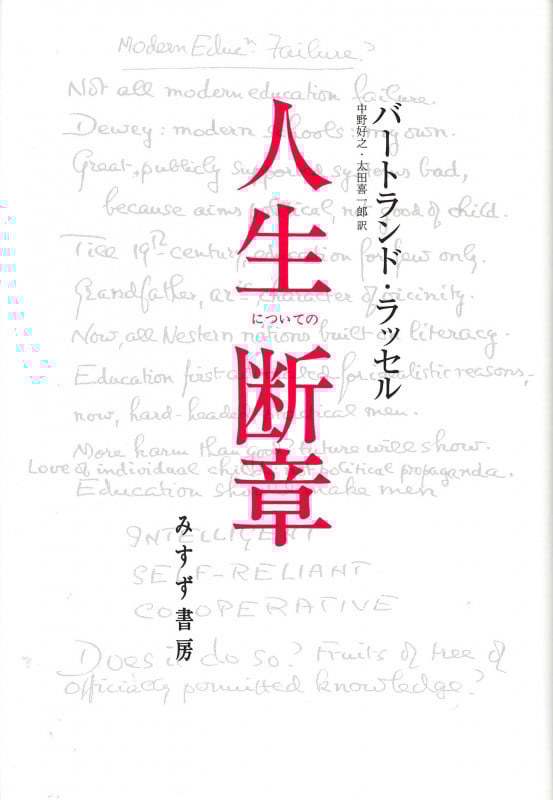 バートランド・ラッセル
中野好之・太田喜一郎訳
人生
についての
断章
みすず書房
Modern Educⁿ: Failure?
Not all modern education failure.
Dewey: modern schools: my own.
Great, publicly systems bad,
because aims political, not good of child.
Till 19th century, education for few only.
Grandfather, character of vicinity.
Now, all Western nations built on literacy.
Education first for idealistic reasons,
now, hard-headed practical men.
More harm than good? Future will show.
Love of individual child, not political propaganda.
Education should make men
INTELLIGENT
SELF-RELIANT
CO-OPERATIVE
Does it do so? Fruits of tree of
officially permitted knowledge?